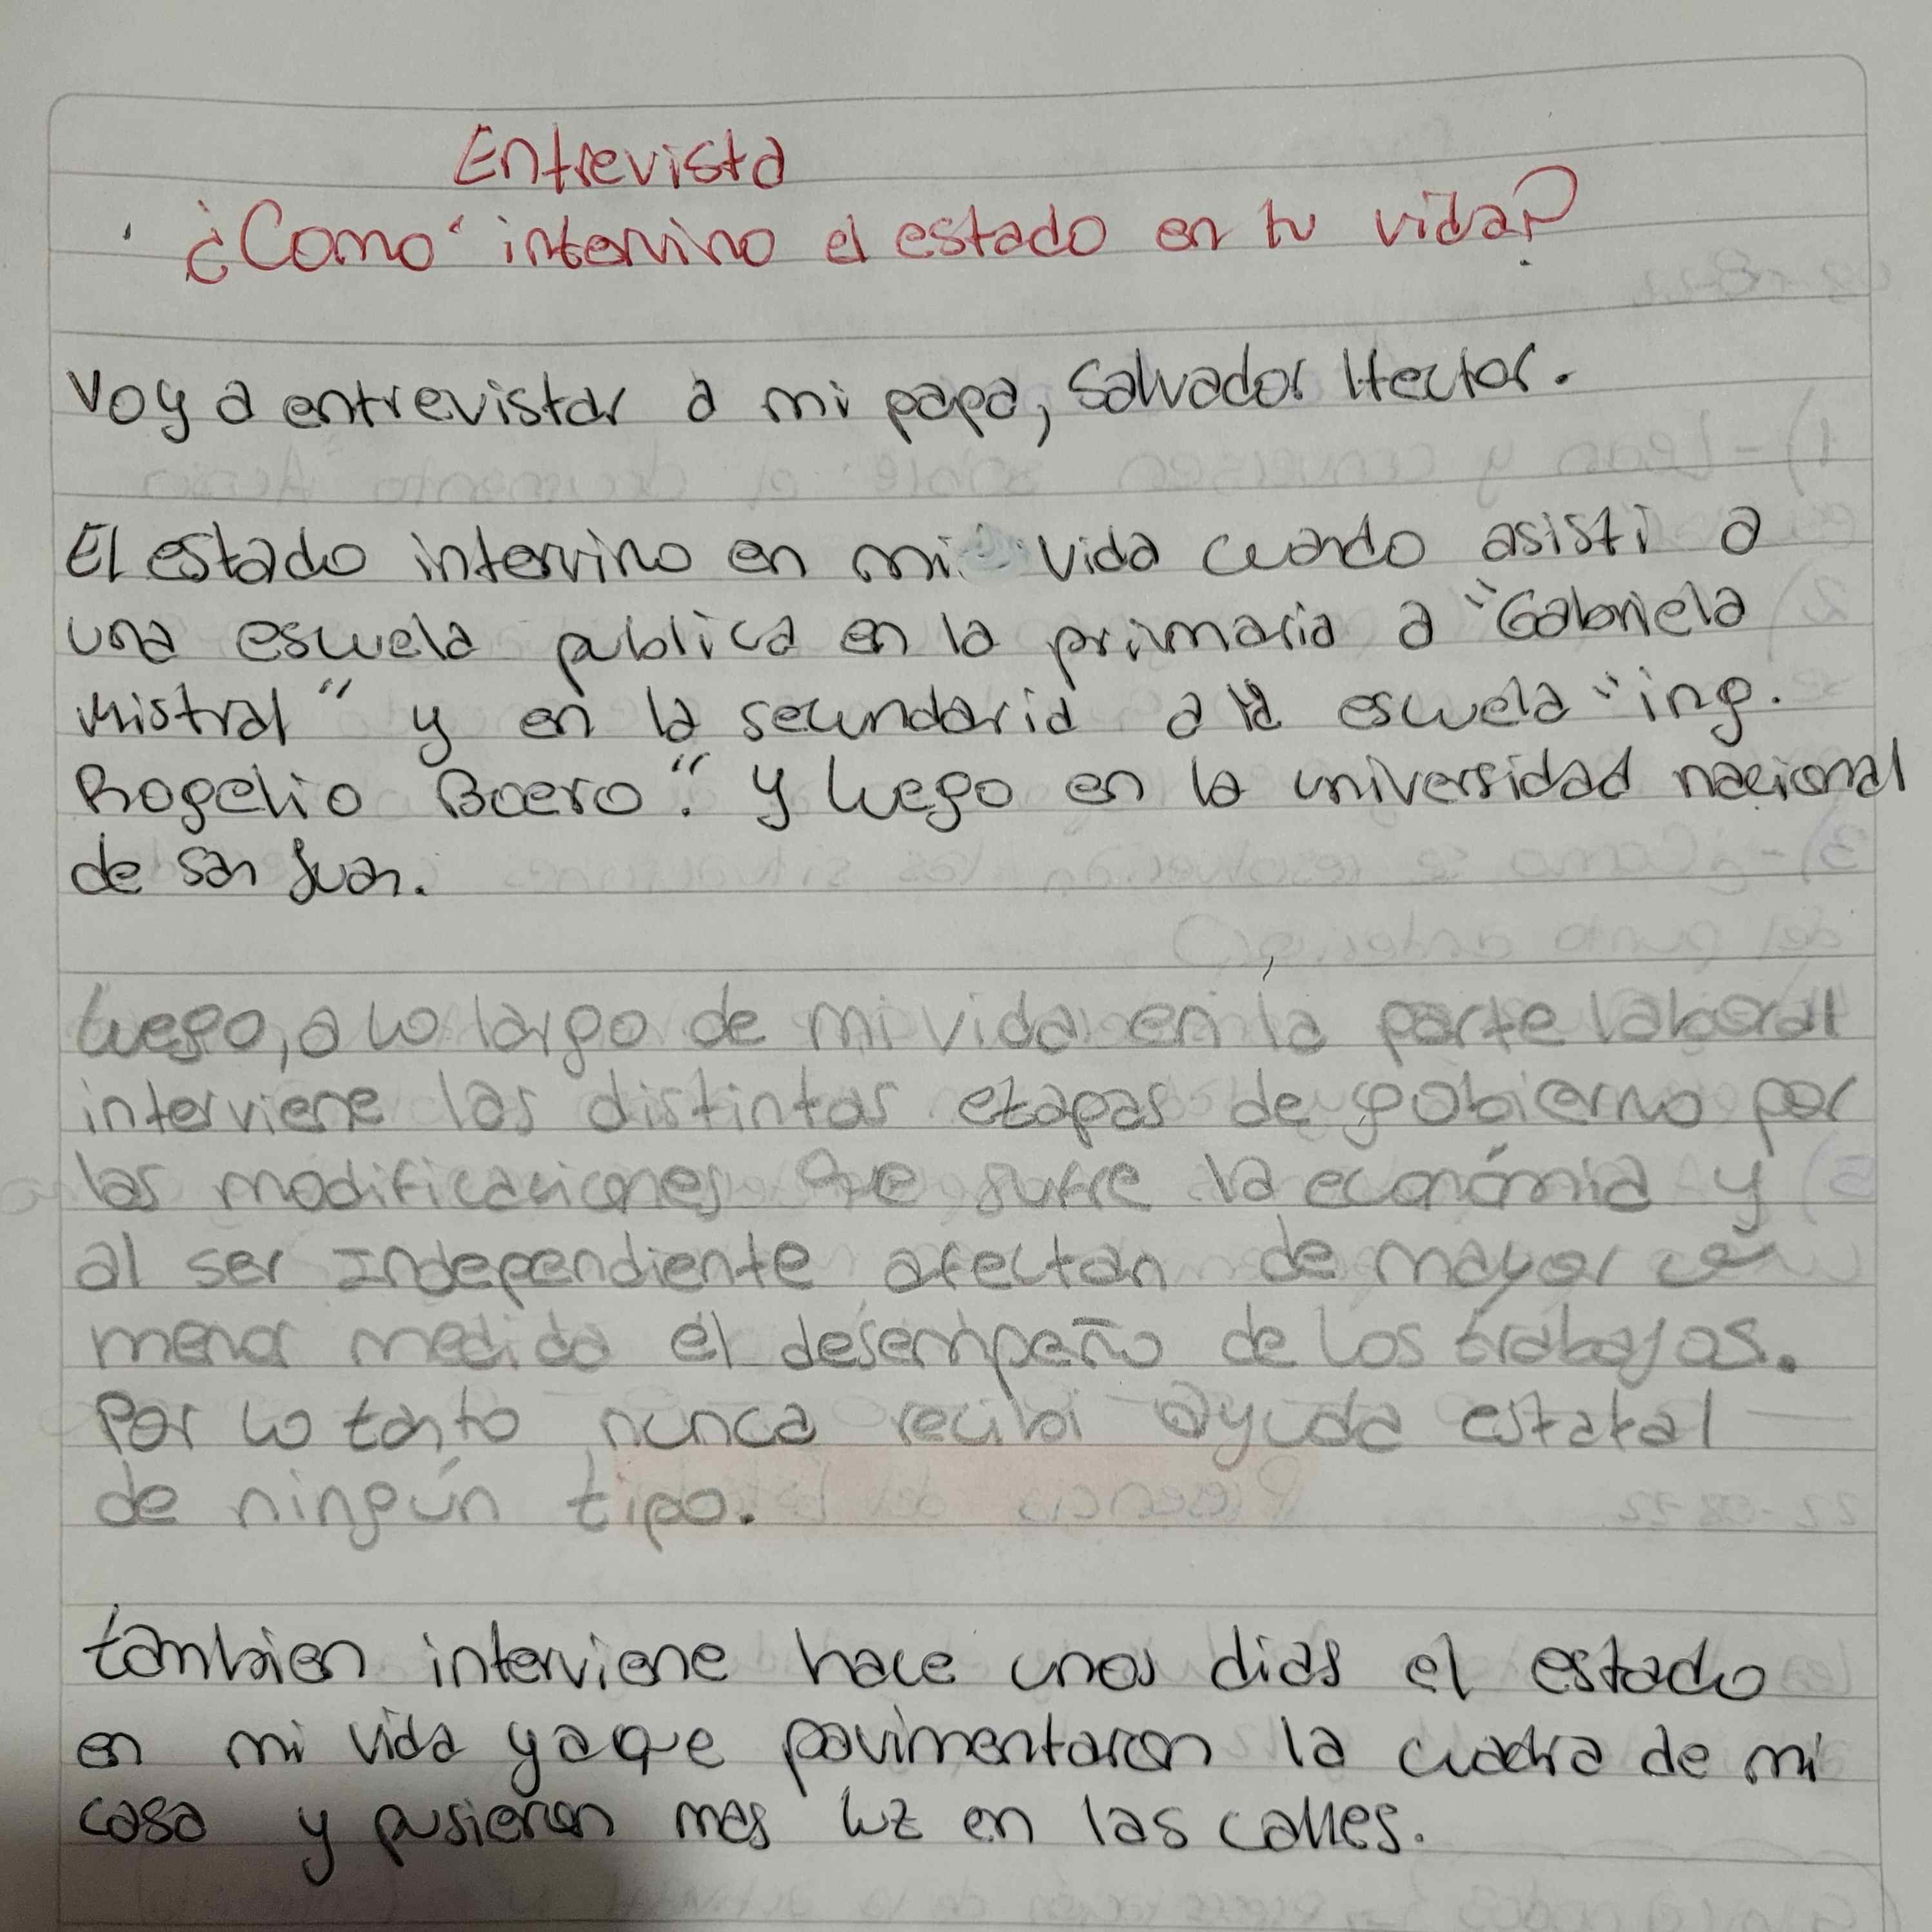 Entrevista
¿Como intervino el estado en tu vida?
Voy a entrevistar a mi papa, Salvador Hector.
El estado intervino en mi vida cuando asisti a
una escuela publica en la primaria a "Gabriela
Mistral" y en la secundaria a la escuela "ing.
Rogelio Boero". y luego en la universidad nacional
de san Juan.
luego, a lo largo de mi vida en la parte laboral
interviene las distintas etapas de gobierno por
las modificaciones que sufre la económia y
al ser Independiente afectan de mayor
menor medida el desempeño de los trabajos.
Por lo tanto nunca recibi ayuda estatal
de ningún tipo.
tambien interviene hace unos dias el estado
en mi vida ya que pavimentaron la cuadra de mi
casa y pusieron mas luz en las calles.